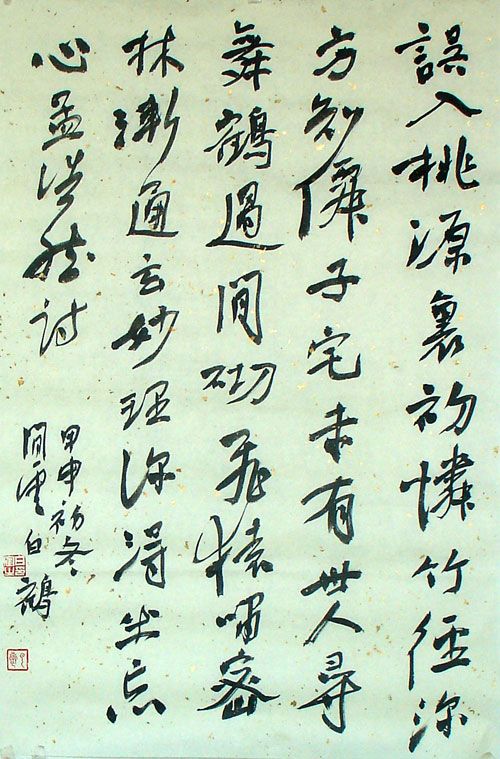 誤入桃源裏初憐竹徑深
方知僊子宅未有世人尋
舞鶴過間砌飛猿嘯密
林漸通玄妙理深得坐忘
心孟浩然詩
甲申初冬
間雲白鶴